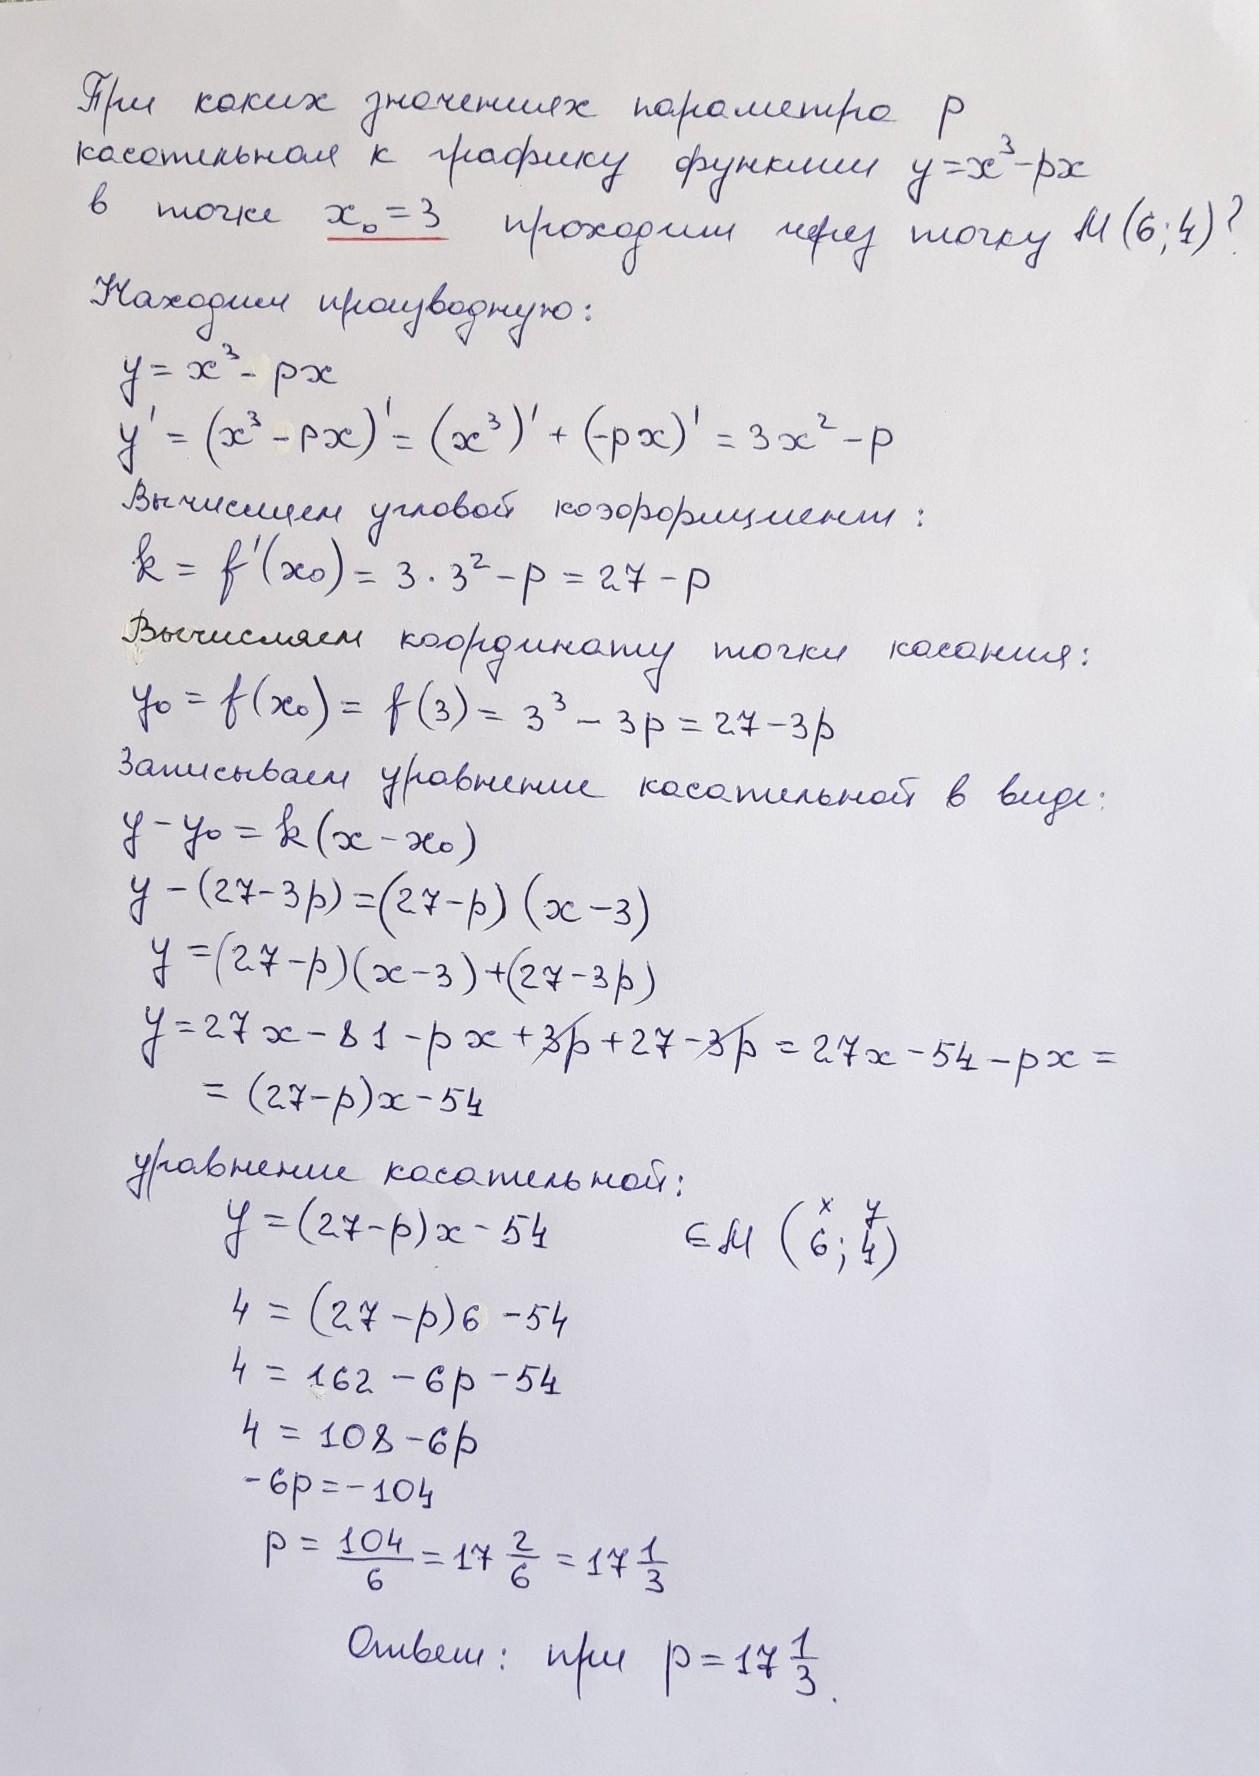 При каких значениях параметра p
касательная к графику функции y=x³-px
в точке x₀=3 проходит через точку M(6;4)?
Находим производную:
y = x³ - px
y' = (x³ - px)' = (x³)' + (-px)' = 3x² - p
Вычисляем угловой коэффициент:
k = f'(x₀) = 3 · 3² - p = 27 - p
Вычисляем координату точки касания:
y₀ = f(x₀) = f(3) = 3³ - 3p = 27 - 3p
Записываем уравнение касательной в виде:
y - y₀ = k(x - x₀)
y - (27 - 3p) = (27 - p) (x - 3)
y = (27 - p)(x - 3) + (27 - 3p)
y = 27x - 81 - px + 3p + 27 - 3p = 27x - 54 - px =
= (27 - p)x - 54
уравнение касательной:
y = (27 - p)x - 54 ∈ M (6; 4) x y
4 = (27 - p)6 - 54
4 = 162 - 6p - 54
4 = 108 - 6p
-6p = -104
p = 104/6 = 17 2/6 = 17 1/3
Ответ: при p = 17 1/3.